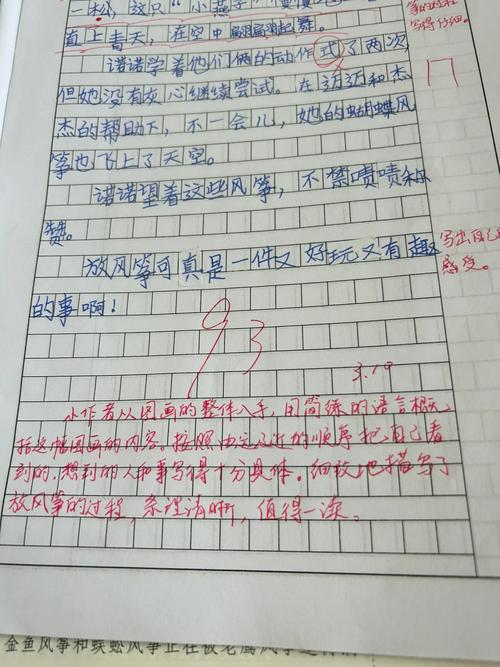 一松，这只"小燕子"
直上青天，在空中翩翩起舞。
诺诺学着他们俩的动作式了两次，
但她没有灰心继续尝试。在迈迈和杰
杰的帮助下，不一会儿，她的蝴蝶风
筝也飞上了天空。
诺诺望着这些风筝，不禁啧啧称
赞。
放风筝可真是一件又好玩又有趣
的事啊！
写得仔细。
写出自己
感受。
93
3.19
小作者从图画的整体入手，用简练的语言概
括这幅图画的内容。按照由远及近的顺序把自己看
到的.想到的人和事写得十分具体。细致地描写了
放风筝的过程，条理清晰，值得一读。
金鱼风筝和蜈蚣风筝正在被老鹰风筝追